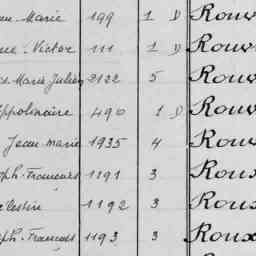 Marie 199 1 D Rouv
Victor 111 1 D Rouv
Marie Julien 2122 5 Rouv
Hippolinaire 490 1 D Rouv
Jean Marie 1935 4 Rouv
ph. François 1191 3 Roux
élestin 1192 3 Roux
ph. François 1193 3 Roux